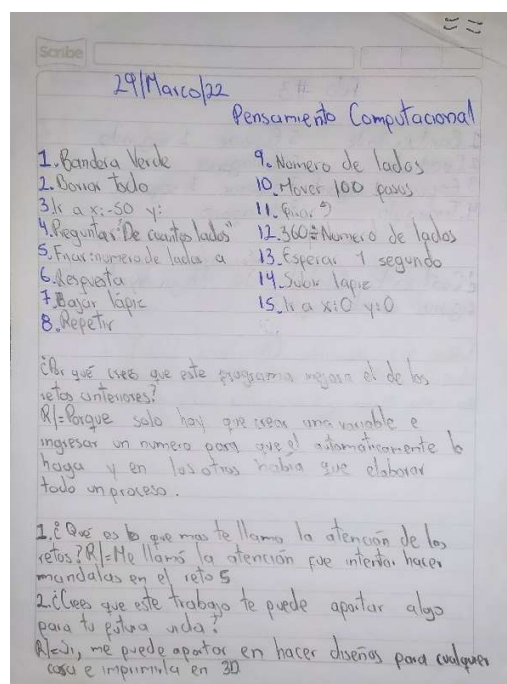 Scribe
29/Marco/22
Pensamento Computacional
1. Bandera Verde
2. Borrar todo
3. Ir a x:-50 y:
4. Preguntar "De cuantos lados"
5. Fnar: numero de lados a
6. Respuesta
7. Bajar lápiz
8. Repetir
9. Numero de lados
10. Mover 100 pasos
11. Girar
12. 360÷Numero de lados
13. Esperar 1 segundo
14. Subir lapiz
15. Ir a x:0 y:0
¿Por qué crees que este programa mejora el de los
retos anteriores?
R/=Porque solo hay que crear una variable e
ingresar un numero para que el automáticamente lo
haga y en los otros habia que elaborar
todo un proceso.
1. ¿Qué es lo que mas te llamo la atención de los
retos? R/=Me llamó la atención fue intentar hacer
mandalas en el reto 5
2. ¿Crees que este trabajo te puede aportar algo
para tu futura vida?
R/=Si, me puede aportar en hacer diseños para cualquier
cosa e imprimirla en 3D